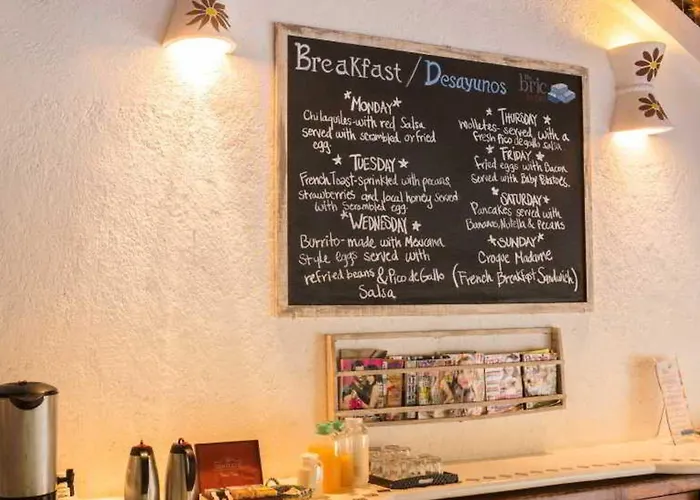 Breakfast / Desayunos
bric
*MONDAY*
Chilaquiles-with red Salsa
served with scrambled or fried
egg.
* TUESDAY *
French Toast-sprinkled with pecans,
strawberries and local honey served
with Scrambled egg.
*WEDNESDAY *
Burrito-made with Mexicana
style eggs served with
refried beans & Pico de Gallo
Salsa
* THURSDAY *
Molletes-served with a
fresh Pico de gallo salsa.
* FRIDAY *
fried eggs with Bacon
Served with Baby Potatoes.
*SATURDAY *
Pancakes served with
Bananas, Nutella & Pecans
*SUNDAY*
Croque Madame
(French Breakfast Sandwich)